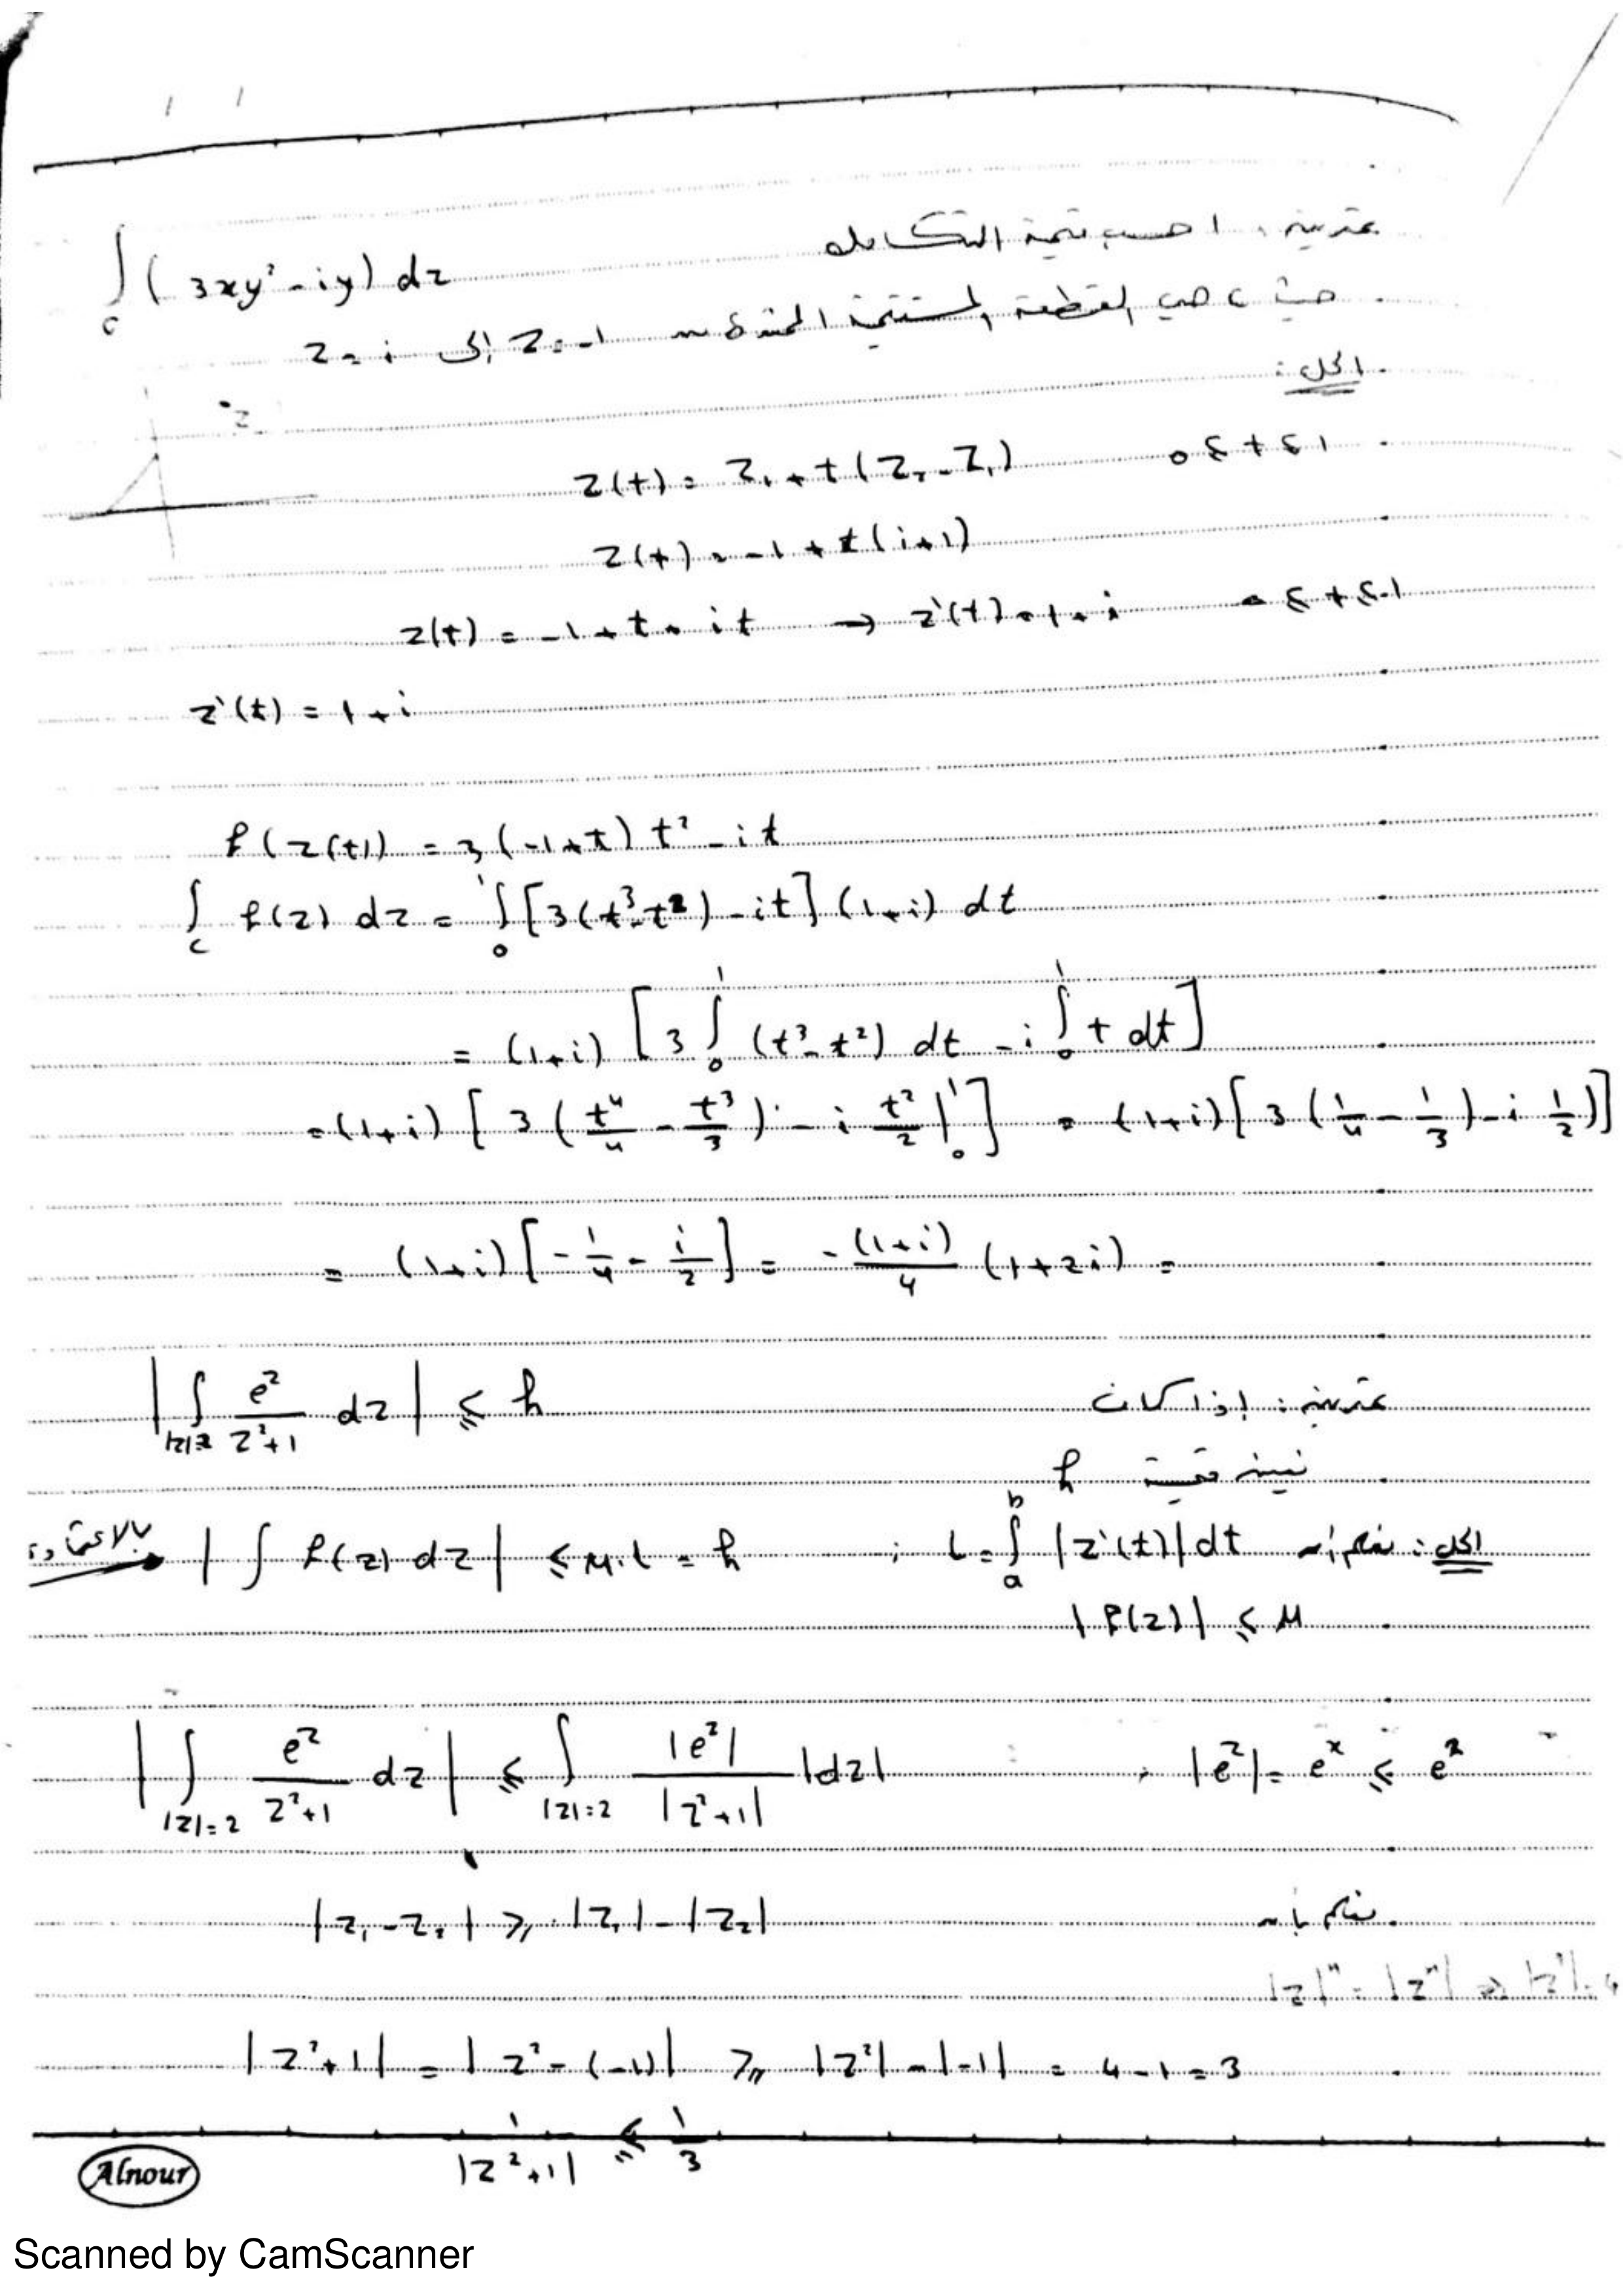 تمرين: احسب قيمة التكامل ∫_c (3xy² - iy) dz
حيث c هي القطعة المستقيمة الممتدة من z = -1 إلى z = i
الحل:
z(t) = z₁ + t(z₂ - z₁)   0 ≤ t ≤ 1
z(t) = -1 + t(i+1)
z(t) = -1 + t + it → z'(t) = 1 + i   0 ≤ t ≤ 1
z'(t) = 1 + i
f(z(t)) = 3(-1+t)t² - it
∫_c f(z) dz = ∫₀¹ [3(t³-t²) - it](1+i) dt
= (1+i) [3∫₀¹ (t³-t²) dt - i∫₀¹ t dt]
= (1+i) [3(t⁴/4 - t³/3) - i t²/2 |₀¹] = (1+i)[3(1/4 - 1/3) - i 1/2)]
= (1+i)[-1/4 - i/2] = -(1+i)/4 (1+2i) =
تمرين: إذا كانت |∫_{|z|=2} e^z/(z²+1) dz| ≤ h
قيمة h
الحل: نعلم أن L = ∫_a^b |z'(t)| dt ; |∫ f(z) dz| ≤ M.L = h
|f(z)| ≤ M
|∫_{|z|=2} e^z/(z²+1) dz| ≤ ∫_{|z|=2} |e^z|/|z²+1| |dz| , |e^z| = e^x ≤ e²
نعلم بأن |z₁ - z₂| ≥ |z₁| - |z₂|
|z|ⁿ = |zⁿ| ⇒ |z²| = 4
|z²+1| = |z² - (-1)| ≥ |z²| - |-1| = 4 - 1 = 3
1/|z²+1| ≤ 1/3
Alnour
Scanned by CamScanner